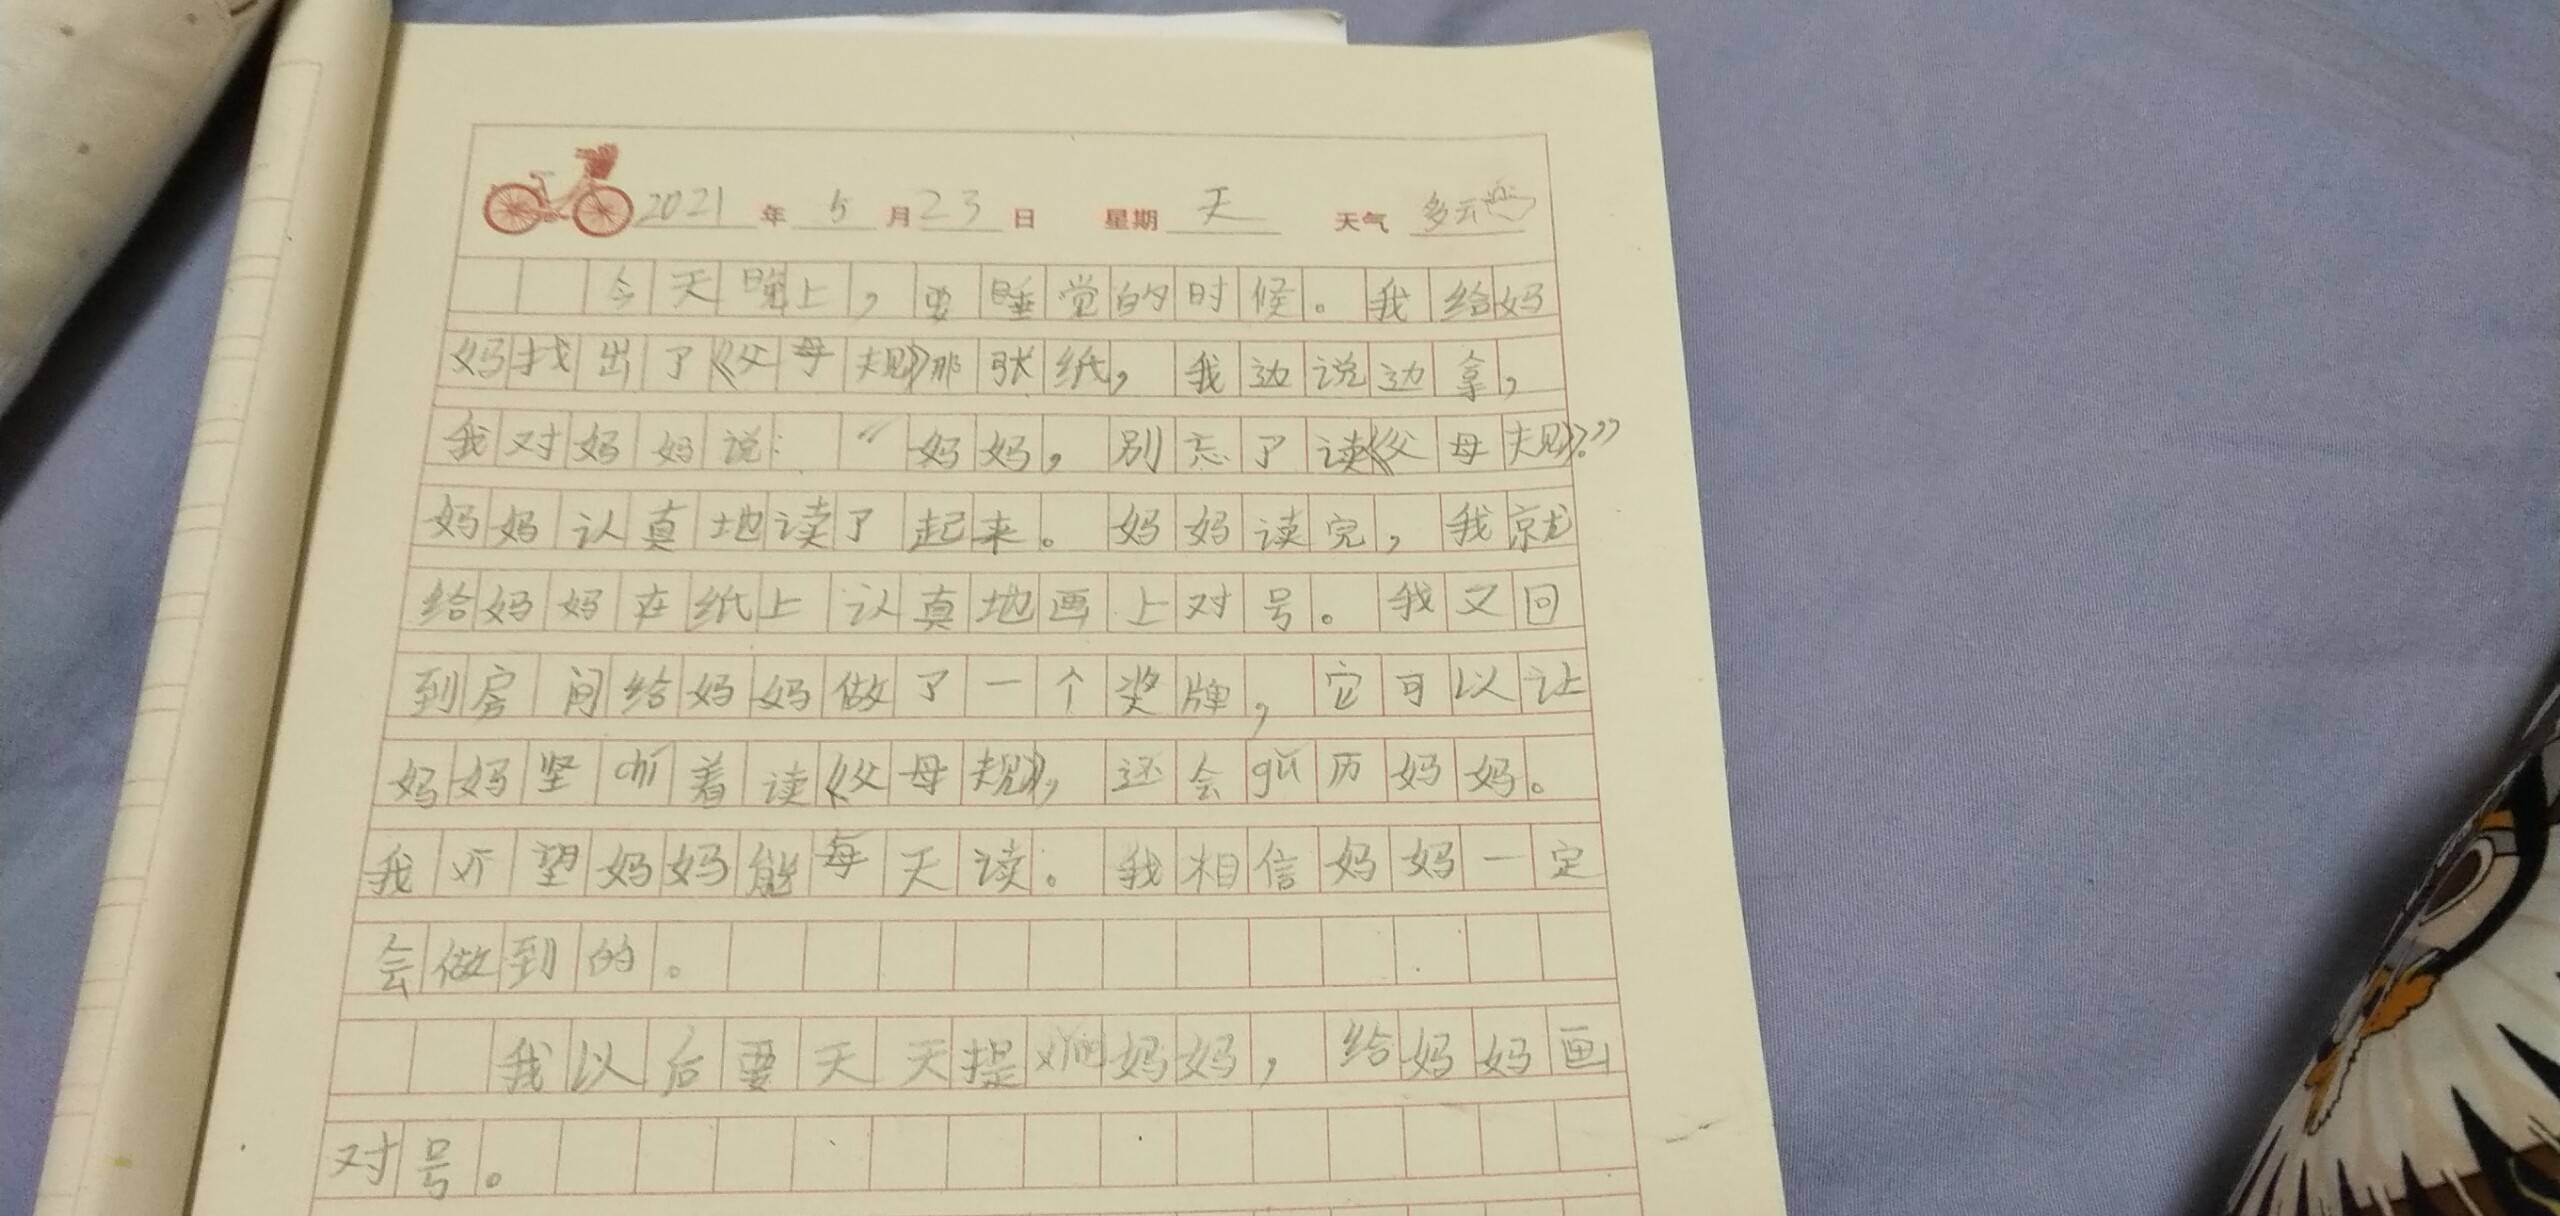 2021年5月23日 星期天 天气多云
今天晚上，要睡觉的时候。我给妈
妈找出了《父母规》那张纸，我边说边拿，
我对妈妈说：“妈妈，别忘了读《父母规》。”
妈妈认真地读了起来。妈妈读完，我就
给妈妈在纸上认真地画上对号。我又回
到房间给妈妈做了一个奖牌，它可以让
妈妈坚chí着读《父母规》，还会gǔ历妈妈。
我希望妈妈能每天读。我相信妈妈一定
会做到的。
我以后要天天提妈妈，给妈妈画
对号。